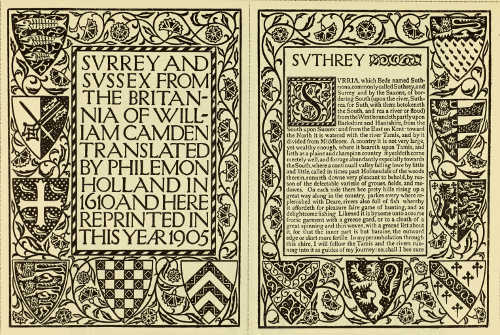 SVRREY AND
SVSSEX FROM
THE BRITAN-
NIA OF WILL-
IAM CAMDEN
TRANSLATED
BY PHILEMON
HOLLAND IN
1610 AND HERE
REPRINTED IN
THIS YEAR 1905
SVTHREY
SVRRIA, which Bede named Suth-
riona, commonly called Suthrey, and
Surrey and by the Saxons, of bor-
dering South upon the river, Suth-
rea, for Suth, with them betokeneth
the South, and rea a river or floud:
from the West boundeth partly upon
Barkshire and Hantshire, from the
South upon Sussex: and from the East on Kent: toward
the North it is watered with the river Tamis, and by it
divided from Middlesex. A country it is not very large,
yet wealthy enough, where it beareth upon Tamis, and
lieth as a plaine and champion country. It yeeldeth corne
meetely well, and forrage abundantly especially towards
the South, where a continuall valley falling low by little
and little, called in times past Holmesdale of the woods
therein, runneth downe very pleasant to behold, by rea-
son of the delectable varietie of groves, fields, and me-
dowes. On each side there bee prety hills rising up a
great way along in the country, parkes every where re-
plenished with Deere, rivers also full of fish: whereby
it affordeth for pleasure faire game of hunting, and as
delightsome fishing. Likened it is by some unto a course
freize garment with a greene gard, or to a cloath of a
great spinning and thin woven, with a greene list about
it, for that the inner part is but baraine, the outward
edge or skirt more fertile. In my perambulation through
this shire, I will follow the Tamis and the rivers run-
ning into it as guides of my journey: so shall I bee sure